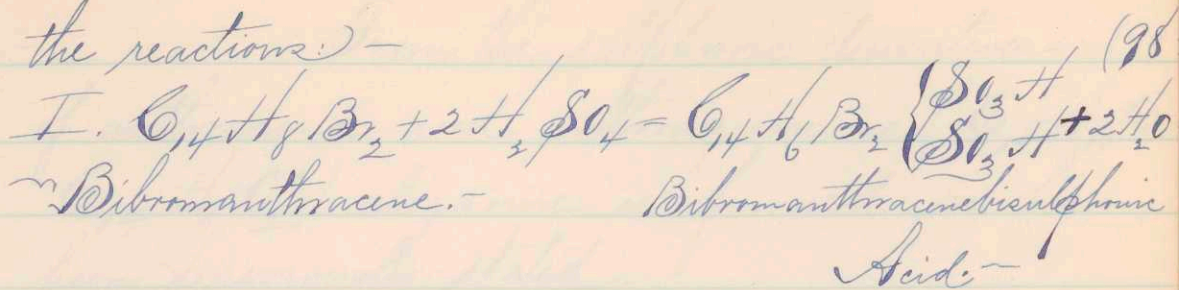 the reactions:)— (98
I. C₁₄H₈Br₂ + 2H₂SO₄ = C₁₄H₆Br₂ { SO₃H SO₃H + 2H₂O
Bibromanthracene.— Bibromanthracenebisulphonic
Acid.—